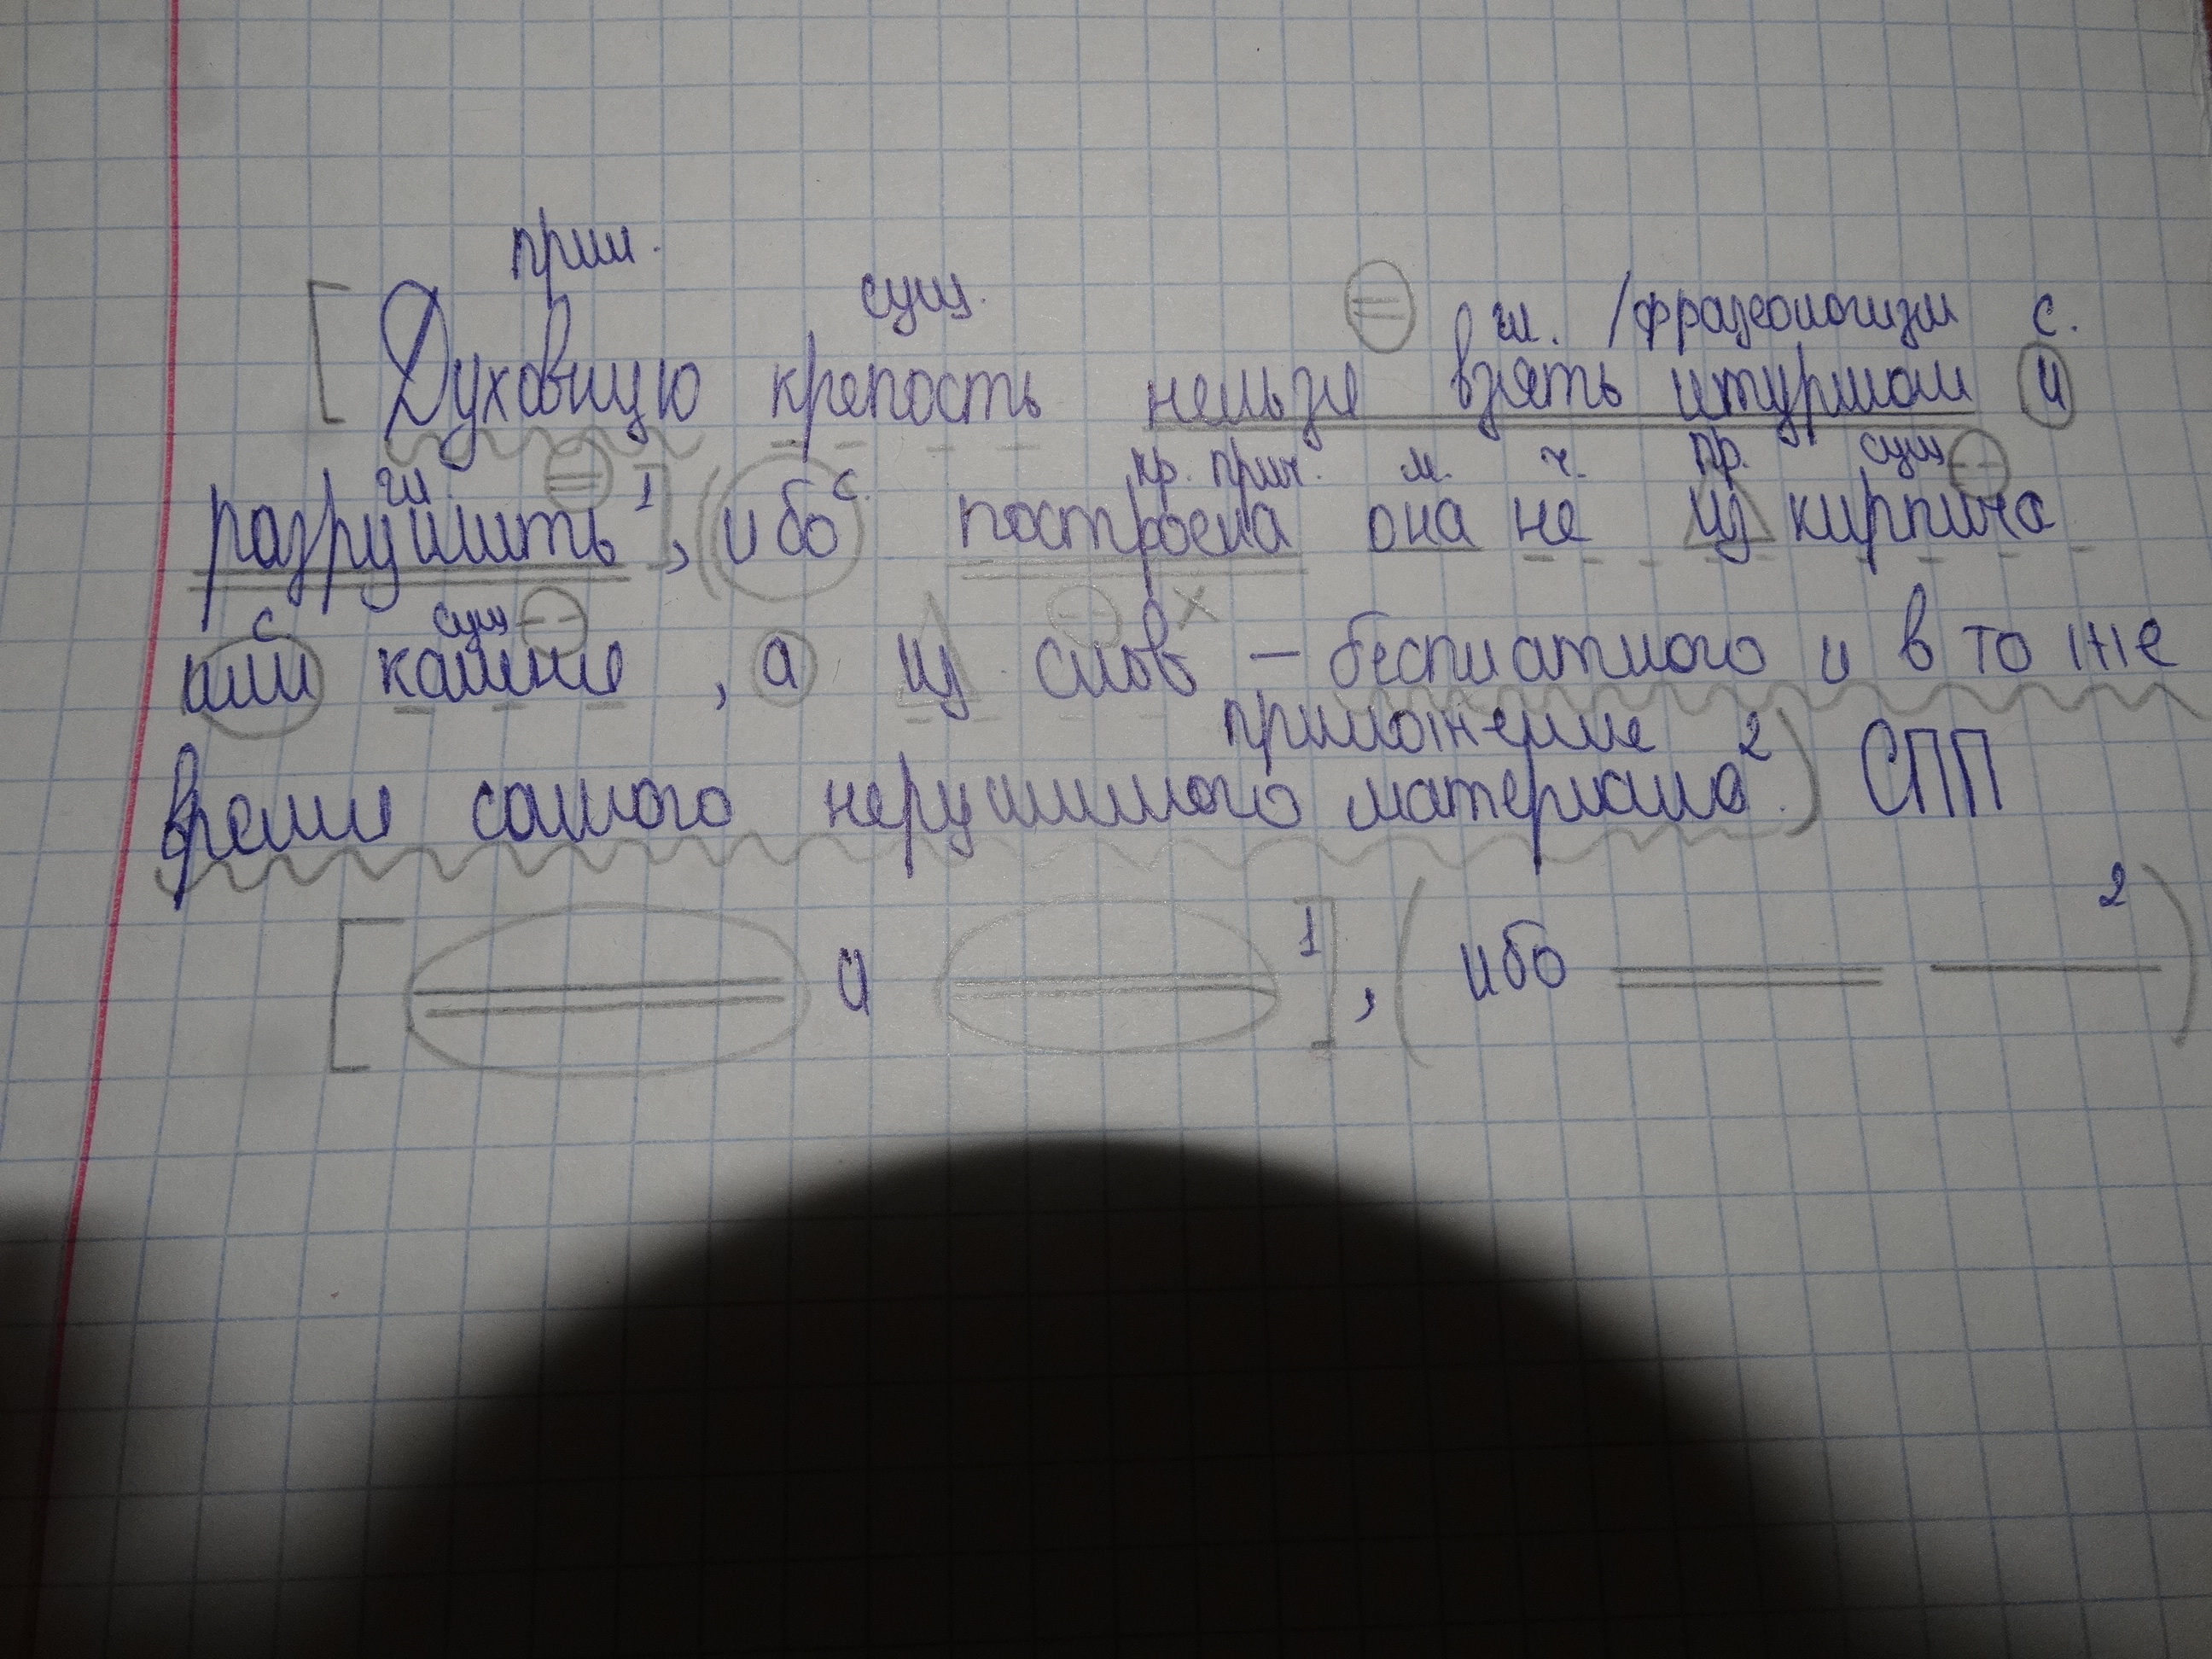 прил. сущ. гл. /фразеологизм с.
Духовную крепость нельзя взять штурмом и
гл. 1 с. кр. прич. м. ч. пр. сущ
разрушить, ибо построена она не из кирпича
с сущ
или камня, а из слов – бесплатного и в то же
приложение 2
время самого нерушимого материала. СПП
[ и 1], ( ибо 2)